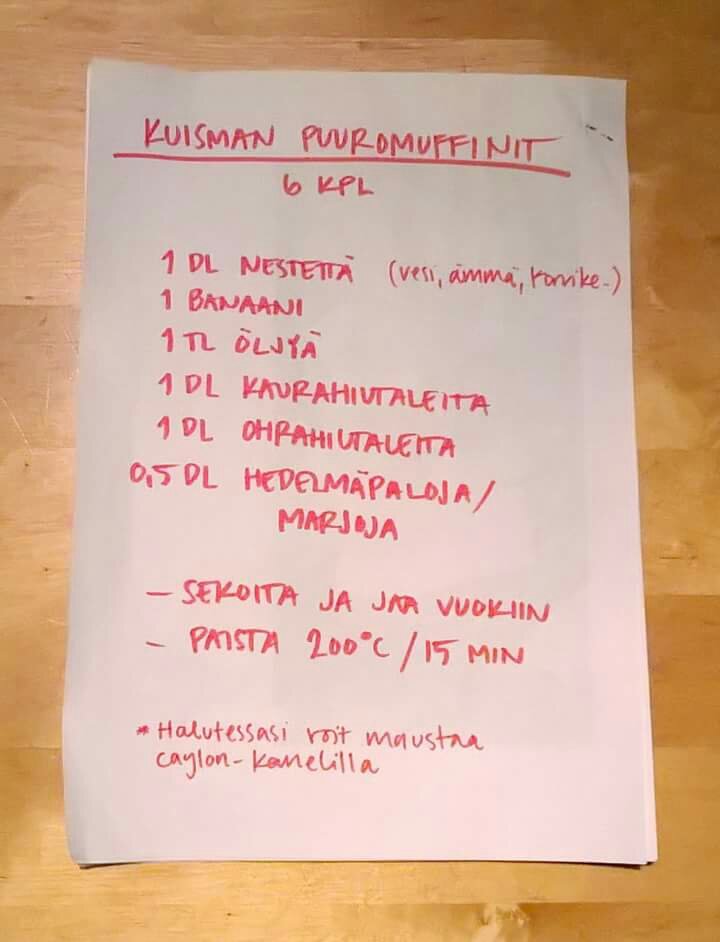 KUISMAN PUUROMUFFINIT
6 KPL
1 DL NESTETTÄ (vesi, ämmä, korvike-)
1 BANAANI
1 TL ÖLJYÄ
1 DL KAURAHIUTALEITA
1 DL OHRAHIUTALEITA
0,5 DL HEDELMÄPALOJA/
MARJOJA
- SEKOITA JA JAA VUOKIIN
- PAISTA 200°C/15 MIN
* Halutessasi voit maustaa
caylon-kanelilla